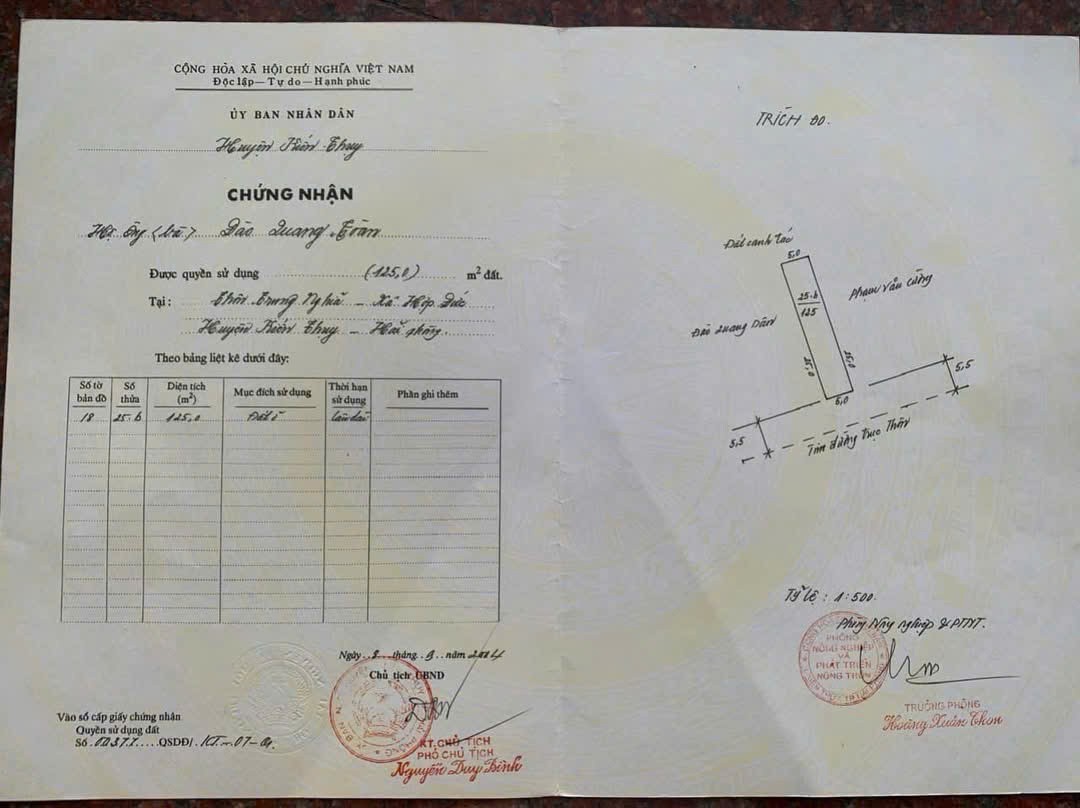 CỘNG HÒA XÃ HỘI CHỦ NGHĨA VIỆT NAM
Độc lập — Tự do — Hạnh phúc
ỦY BAN NHÂN DÂN
Huyện Kiến Thụy
CHỨNG NHẬN
Hộ ông (bà) Đào Quang Toàn
Được quyền sử dụng (125,0) m² đất.
Tại: Thôn Trung Nghĩa - Xã Hợp Đức
Huyện Kiến Thụy - Hải Phòng.
Theo bảng liệt kê dưới đây:
Số tờ bản đồ Số thửa Diện tích (m²) Mục đích sử dụng Thời hạn sử dụng Phần ghi thêm
18 25-b 125,0 Đất ở Lâu dài
Ngày 8 tháng 9 năm 2004
Chủ tịch UBND
KT. CHỦ TỊCH
PHÓ CHỦ TỊCH
Nguyễn Duy Bình
Vào sổ cấp giấy chứng nhận
Quyền sử dụng đất
Số QSDĐ/
TRÍCH ĐO.
Đất canh tác
5,0
25-b
125
Phạm Văn Cường
Đào Quang Dân
25,0
25,0
5,0
5,5
5,5
Tim đường trục thôn
Tỷ lệ: 1:500.
Phòng Nông nghiệp & PTNT.
PHÒNG
NÔNG NGHIỆP
VÀ
PHÁT TRIỂN
NÔNG THÔN
TRƯỞNG PHÒNG
Hoàng Xuân Thon